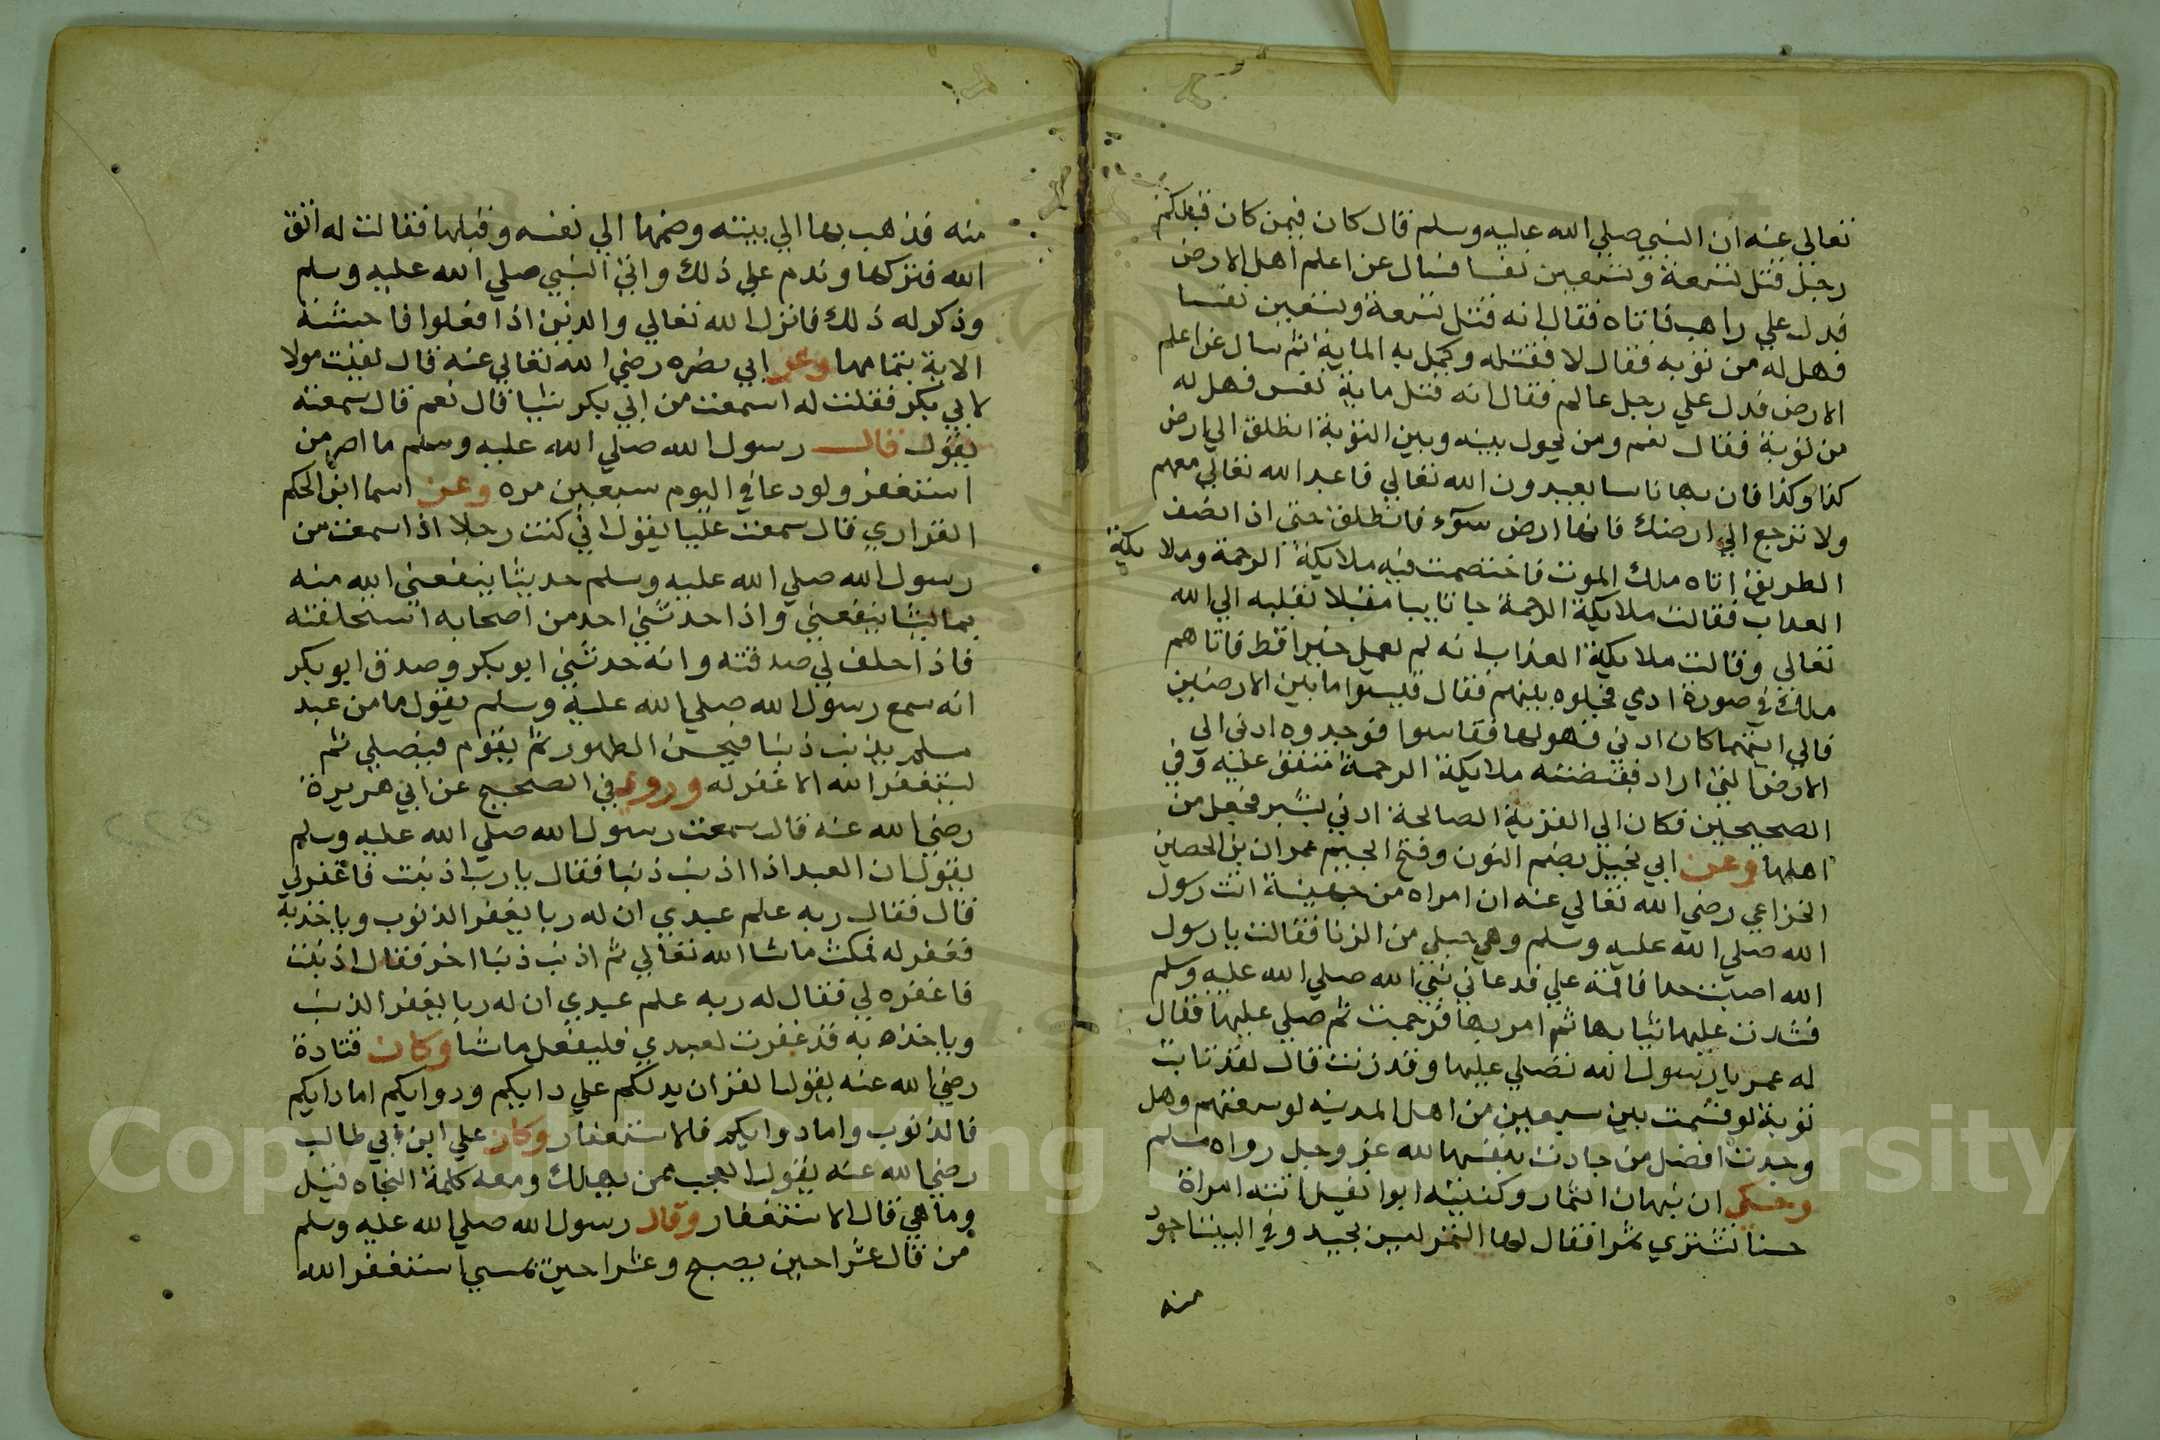 تعالي عنه ان النبي صلي الله عليه وسلم قال كان فيمن كان قبلكم
رجل قتل تسعة وتسعين نفسا فسال عن اعلم اهل الارض
فدل علي راهب فاتاه فقال انه قتل تسعة وتسعين نفسا
فهل له من توبه فقال لا فقتله وكمل به الماية ثم سال عن اعلم
الارض فدل علي رجل عالم فقال انه قتل ماية نفس فهل له
من توبة فقال نعم ومن يحول بينه وبين التوبة انطلق الي ارض
كذا وكذا فان بها ناسا يعبدون الله تعالي فاعبد الله تعالي معهم
ولا ترجع الي ارضك فانها ارض سوء فانطلق حتي اذا انصف
الطريق اتاه ملك الموت فاختصمت فيه ملايكة الرحمة وملايكة
العداب فقالت ملايكة الرحمة جا تايبا مقبلا بقلبه الي الله
تعالي وقالت ملايكة العذاب انه لم يعمل خيرا قط فاتاهم
ملك في صورة ادمي فجعلوه بينهم فقال قيسوا ما بين الارضين
فالي ايتهما كان ادني فهو لها فقاسوا فوجدوه ادني الي
الارض التي اراد فقبضته ملايكة الرحمة متفق عليه وفي
الصحيحين فكان الي القرية الصالحة ادني بشبر فجعل من
اهلها وعن ابي نجيل بضم النون وفتح الجيم عمران بن الحصين
الخزاعي رضي الله تعالي عنه ان امراه من جهينة اتت رسول
الله صلي الله عليه وسلم وهي حبلي من الزنا فقالت يا رسول
الله اصبت حدا فاقمه علي فدعا نبي الله صلي الله عليه وسلم
فشدت عليها ثيابها ثم امر بها فرجمت ثم صلي عليها فقال
له عمر يا رسول الله تصلي عليها وقد زنت قال لقد تابت
توبة لو قسمت بين سبعين من اهل المدينه لوسعتهم وهل
وجدت افضل من جادت بنفسها لله عز وجل رواه مسلم
وحكي ان نبهان التمار وكنيته ابوا نفيل اتته امراة
حسنا تشتري تمرا فقال لها التمر ليس بجيد وفي البيت اجود
منه
منه فذهب بها الي بيته وضمها الي نفسه وقبلها فقالت له اتق
الله فتركها وندم علي ذلك واتي النبي صلي الله عليه وسلم
وذكر له ذلك فانزل الله تعالي والذين اذا فعلوا فاحشة
الاية بتمامها وعن ابي نضره رضي الله تعالي عنه قال لقيت مولا
لابي بكر فقلت له اسمعت من ابي بكر شيا قال نعم قال سمعته
يقول قال رسول الله صلي الله عليه وسلم ما اصر من
استغفر ولو دعا في اليوم سبعين مره وعن اسما ابن الحكم
الفزاري قال سمعت عليا يقول اني كنت رجلا اذا سمعت من
رسول الله صلي الله عليه وسلم حديثا ينفعني الله منه
بما يشا ينفعني واذا حدثني احد من اصحابه استحلفته
فاذا حلف لي صدقته وانه حدثني ابو بكر وصدق ابو بكر
انه سمع رسول الله صلي الله عليه وسلم يقول ما من عبد
مسلم يذنب ذنبا فيحسن الطهور ثم يقوم فيصلي ثم
يستغفر الله الا غفر له وروي في الصحيح عن ابي هريرة
رضي الله عنه قال سمعت رسول الله صلي الله عليه وسلم
يقول ان العبد اذا اذنب ذنبا فقال يا رب اذنبت فاغفر لي
قال فقال ربه علم عبدي ان له ربا يغفر الذنوب وياخذ به
فغفر له فمكث ما شا الله تعالي ثم اذنب ذنبا اخر فقال اذنبت
فاغفره لي فقال له ربه علم عبدي ان له ربا يغفر الذنب
وياخذه به قد غفرت لعبدي فليفعل ما شا وكان قتادة
رضي الله عنه يقول القران يدلكم علي دايكم ودوايكم اما دايكم
فالذنوب واما دوايكم فالاستغفار وكان علي ابن ابي طالب
رضي الله عنه يقول العجب ممن يهلك ومعه كلمة النجاه قيل
وما هي قال الاستغفار وقال رسول الله صلي الله عليه وسلم
من قال عشرا حين يصبح وعشرا حين يمسي استغفر الله
Copyright © King Saud University